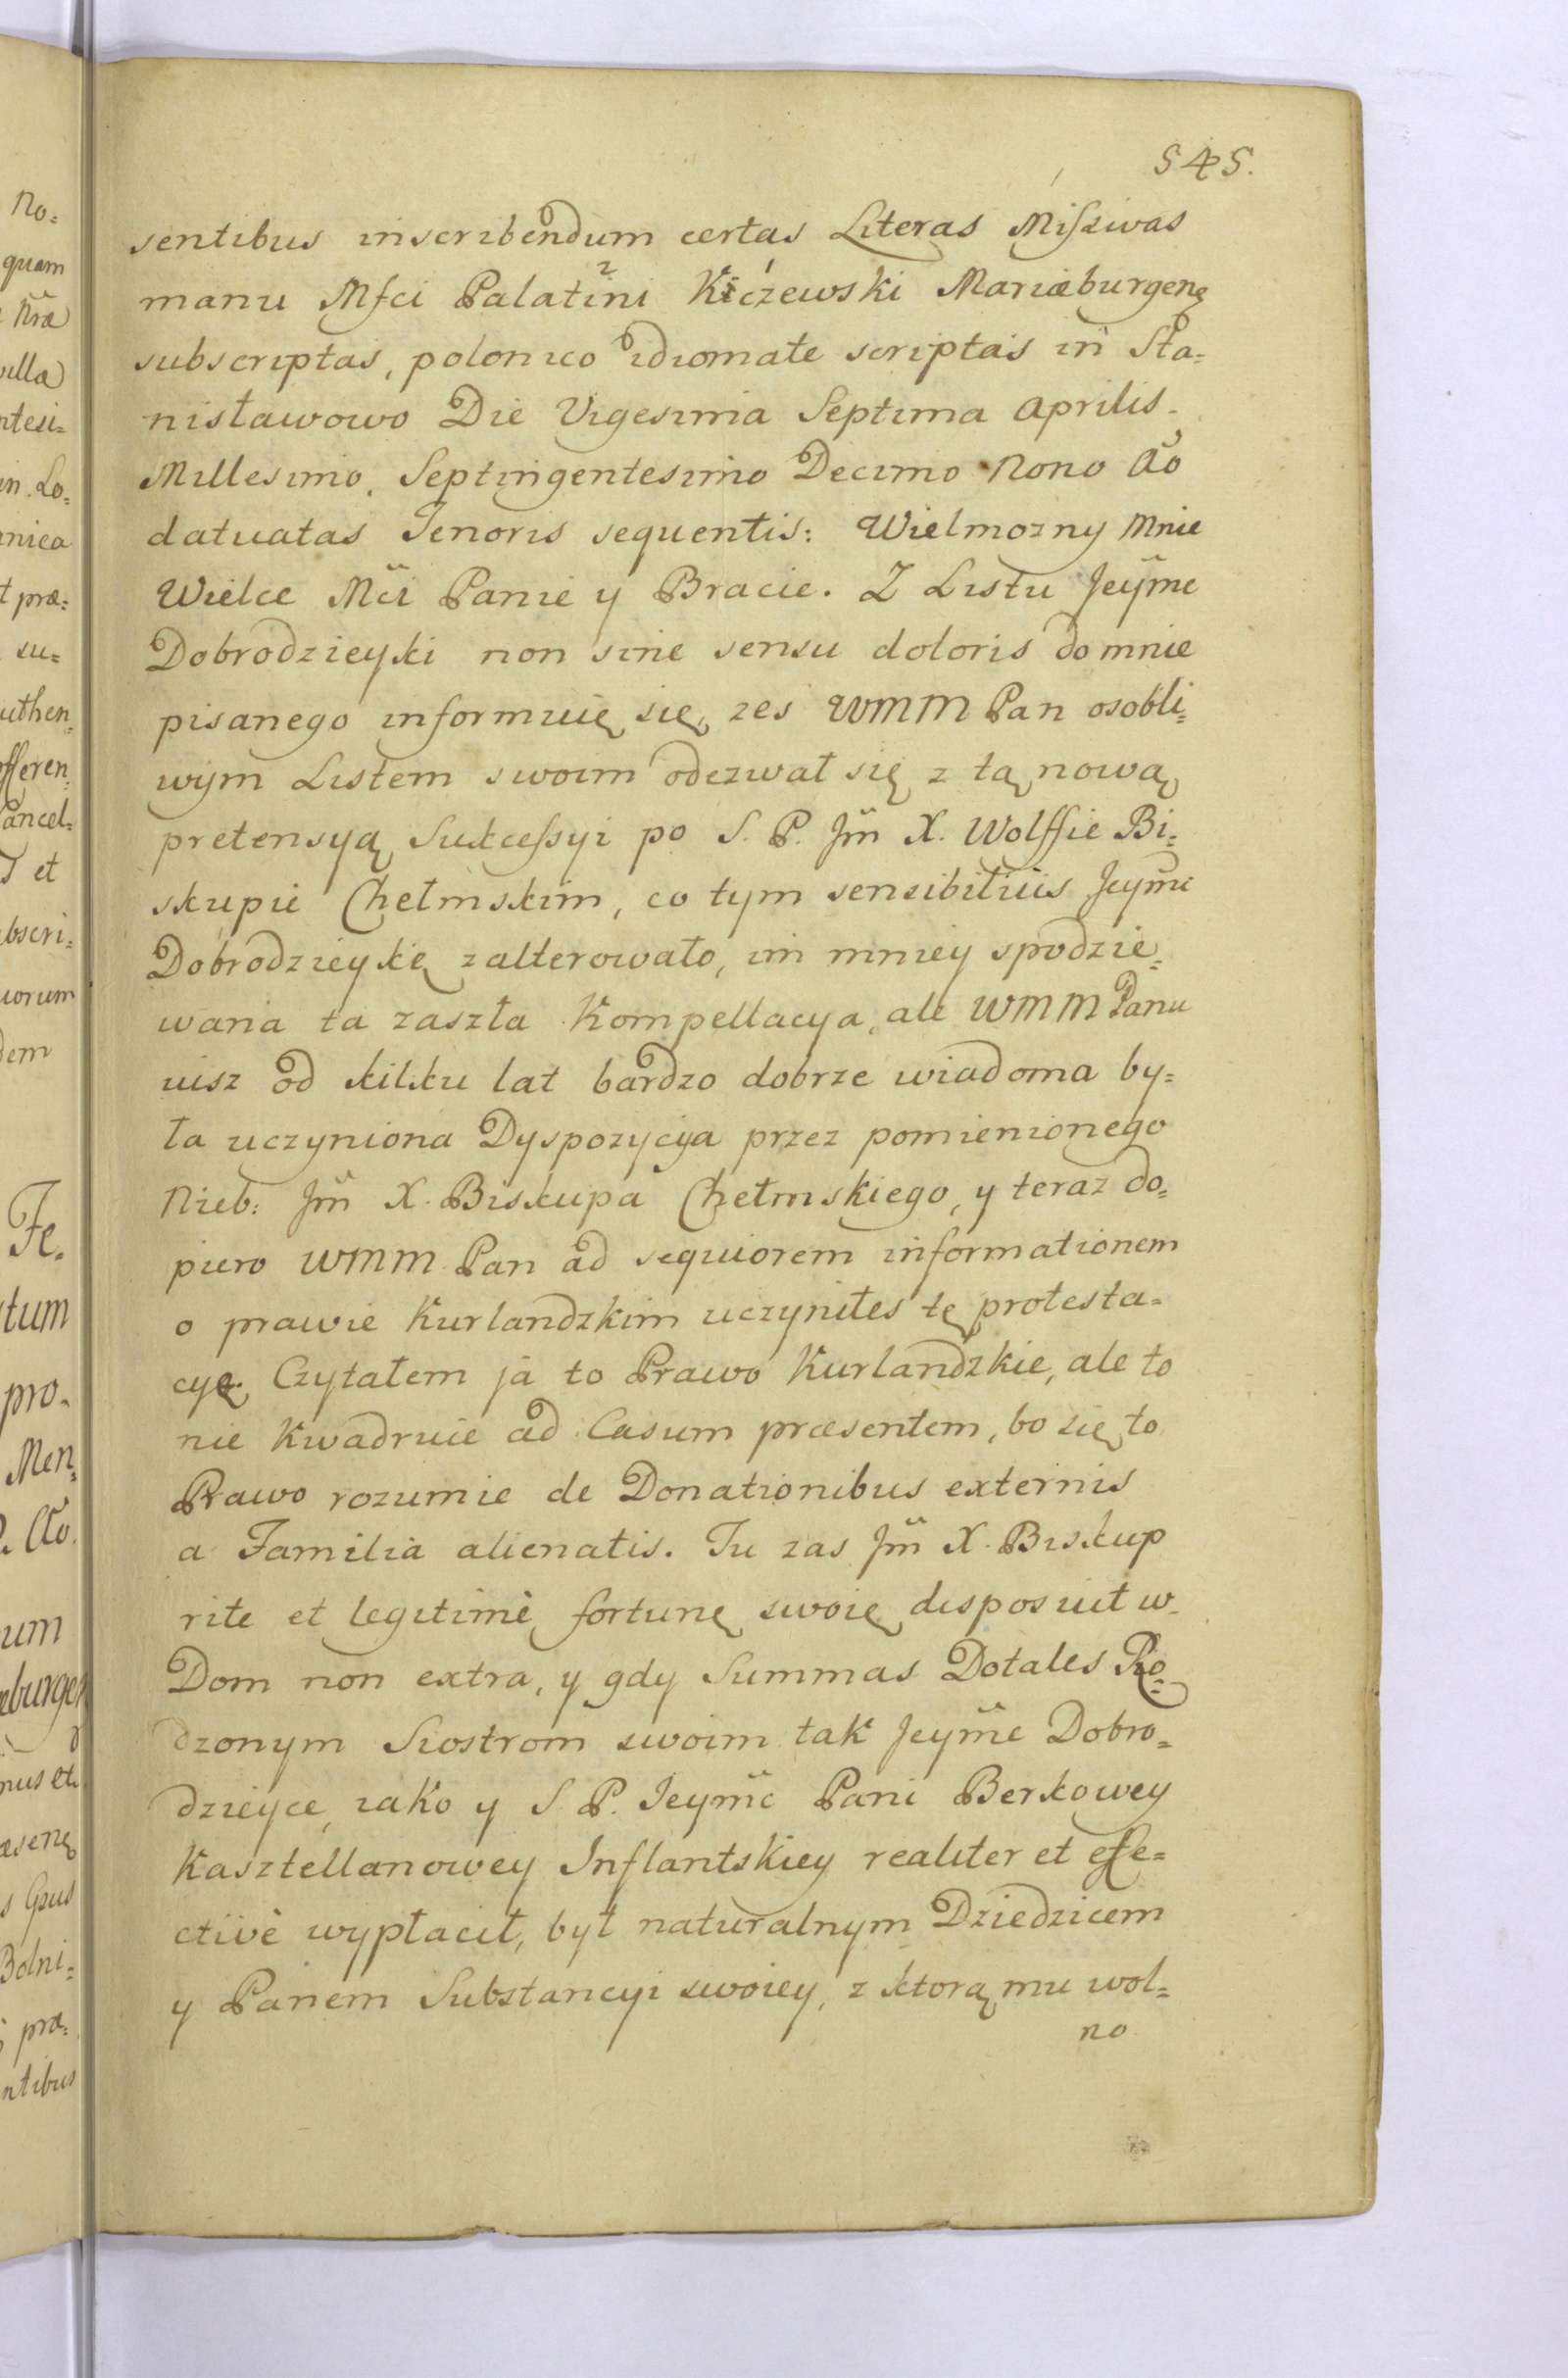 545.
sentibus inscribendum certas Literas Missivas
manu Mfci Palatini Kiczewski Mariæburgenę
subscriptas, polonico idiomate scriptas in Sta=
nisławowo Die Vigesima Septima Aprilis
Millesimo Septingentesimo Decimo Nono Ao
datuatas Tenoris sequentis: Wielmozny Mnie
Wielce Mci Panie y Bracie. Z Listu Jeymc
Dobrodzieyki non sine sensu doloris do mnie
pisanego informuię się, zes WMM Pan osobli=
wym Listem swoim odezwał się z tą nową
pretensyą Sukcessyi po S. P. Jm X. Wolffie Bi=
skupie Chełmskim, co tym sensibilius Jeymc
Dobrodzieykę zalterowało, im mniey spodzie=
wana ta zaszła Kompellacya, ale WMM Panu
uisz od kilku lat bardzo dobrze wiadoma by=
ła uczyniona Dyspozycya przez pomienionego
Nieb: Jm X. Biskupa Chełmskiego, y teraz do=
piero WMM Pan ad sequiorem informationem
o prawie Kurlandzkim uczyniłes tę protesta=
cyę. Czytałem ja to Prawo Kurlandzkie, ale to
nie Kwadruie ad Casum præsentem, bo się to
Prawo rozumie de Donationibus externis
a Familia alienatis. Tu zas Jm X. Biskup
rite et legitimè fortunę swoię disposuit w
Dom non extra, y gdy Summas Dotales Ro=
dzonym Siostrom swoim tak Jeymc Dobro=
dzieyce, iako y S. P. Jeymc Pani Berkowey
Kasztellanowey Inflantskiey realiter et efe=
ctivè wypłacił, był naturalnym Dziedzicem
y Panem Substancyi swoiey, z ktorą mu wol=
no